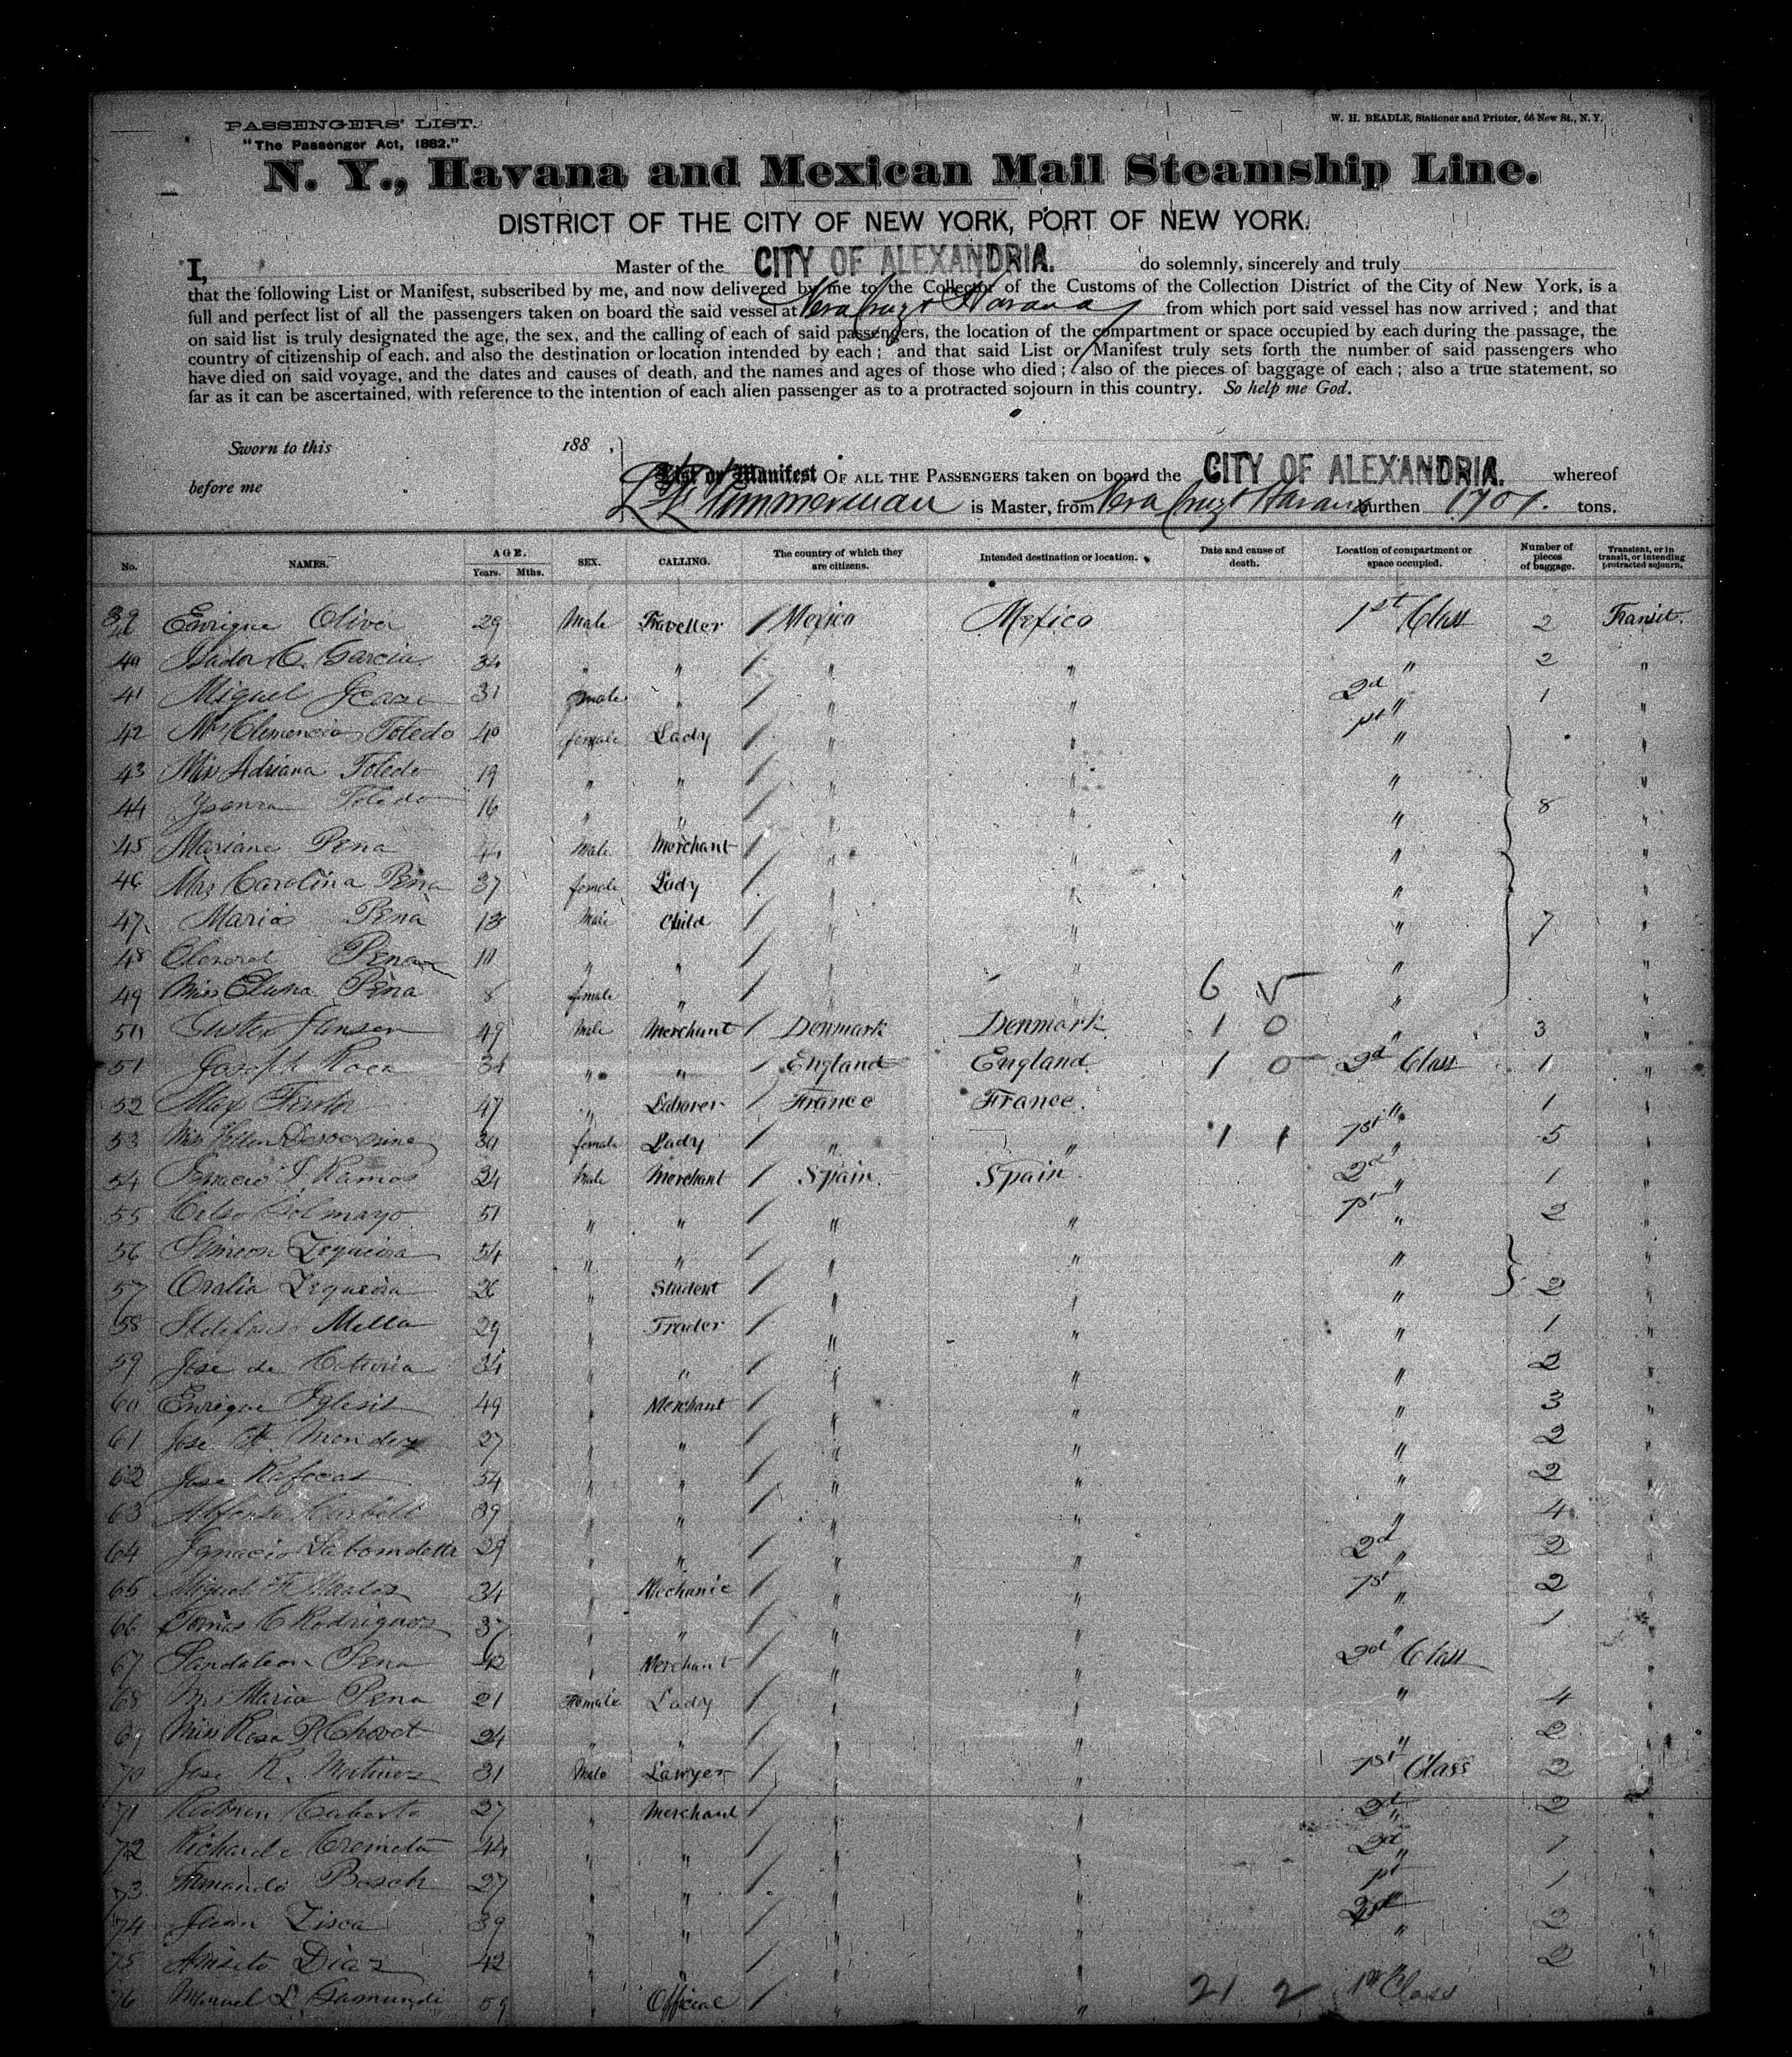 PASSENGERS' LIST.
W. H. BEADLE, Stationer and Printer, 66 New St., N. Y.
"The Passenger Act, 1882."
N. Y., Havana and Mexican Mail Steamship Line.
DISTRICT OF THE CITY OF NEW YORK, PORT OF NEW YORK.
I, Master of the CITY OF ALEXANDRIA. do solemnly, sincerely and truly
that the following List or Manifest, subscribed by me, and now delivered by me to the Collector of the Customs of the Collection District of the City of New York, is a
full and perfect list of all the passengers taken on board the said vessel at Vera Cruz & Havana from which port said vessel has now arrived; and that
on said list is truly designated the age, the sex, and the calling of each of said passengers, the location of the compartment or space occupied by each during the passage, the
country of citizenship of each, and also the destination or location intended by each; and that said List or Manifest truly sets forth the number of said passengers who
have died on said voyage, and the dates and causes of death, and the names and ages of those who died; also of the pieces of baggage of each; also a true statement, so
far as it can be ascertained, with reference to the intention of each alien passenger as to a protracted sojourn in this country. So help me God.
Sworn to this 188 ,
before me
List or Manifest OF ALL THE PASSENGERS taken on board the CITY OF ALEXANDRIA. whereof
Zimmerman is Master, from Vera Cruz & Havana burthen tons.
No. NAMES. AGE. Years. Mths. SEX. CALLING. The country of which they are citizens. Intended destination or location. Date and cause of death. Location of compartment or space occupied. Number of pieces of baggage. Transient, or in transit, or intending protracted sojourn.
39 Enrique Oliver 29 Male Traveller / Mexico Mexico 1st Class 2 Transit.
40 Isador C. Garcia 34 " " / " " " 2 "
41 Miguel 31 male " / " " 2d " 1 "
42 Mrs Clemencia Toledo 40 female Lady / " " 1st " "
43 Miss Adriana Toledo 19 " " / " " " "
44 Toledo 16 " " / " " " 8 "
45 Mariano Pena Male Merchant / " " " "
46 Mrs Carolina Pena 37 female Lady / " " " "
47 Maria Pena 13 Male Child / " " " 7 "
48 Pena 11 " " / " " " "
49 Miss Pena 8 female " / " " 6 " "
50 Gustav Hansen 49 Male Merchant / Denmark Denmark 1 0 " 3 "
51 Joseph 34 " " / England England 1 0 2d Class 1 "
52 Max 47 " Laborer / France France. " 1 "
53 Miss 30 female Lady / " " 1 1 1st " 5 "
54 Ignacio Ramos 24 Male Merchant / Spain Spain 2d " 1 "
55 Celso 51 " " / " " 1st " 2 "
56 Simeon Zequeira 54 " " / " " " "
57 Oralia Zequeira 26 " Student / " " " 2 "
58 Ildefonso Mella 29 " Trader / " " " 1 "
59 Jose de 34 " " / " " " 2 "
60 Enrique 49 " Merchant / " " " 3 "
61 Jose F. Mendez 27 " " / " " " 2 "
62 Jose 54 " " / " " " 2 "
63 Alfonso 39 " " / " " " 4 "
64 Ignacio 29 " " / " " 2d " 2 "
65 Miguel 34 " Mechanic / " " 1st " 2 "
66 Tomas C Rodriguez 37 " " / " " " 1 "
67 Pena 42 " Merchant / " " 2d Class "
68 Mrs Maria Pena 21 Female Lady / " " " 4 "
69 Miss Rosa P. Chovet 24 " " / " " " 2 "
70 Jose R. Martinez 31 Male Lawyer / " " 1st Class 2 "
71 27 " Merchant / " " " 2 "
72 44 " " / " " 2d " 1 "
73 Fernando Bosch 27 " " / " " 1st " 1 "
74 Juan 39 " " / " " " 2 "
75 Diaz 42 " " / " " 2 "
76 Manuel 59 " Official / " " 21 2 1st Class "